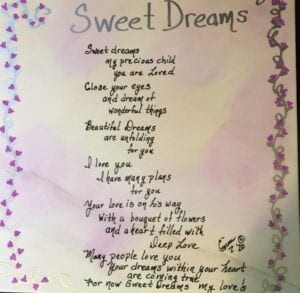 Sweet Dreams
Sweet dreams
my precious child
you are Loved
Close your eyes
and dream of
wonderful things
Beautiful Dreams
are unfolding
for you
I love you
I have many plans
for you
Your love is on his way
With a bouquet of flowers
and a heart filled with
Deep Love
Many people love you
Your dreams within your heart
are coming true
For now Sweet Dreams my love